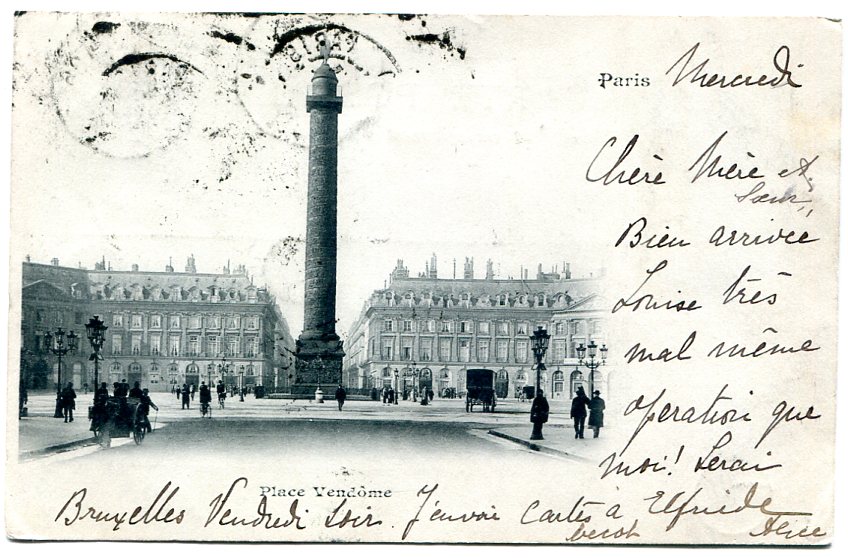 PARIS
Paris Mercredi
Chère Mère et
Sœur,,
Bien arrivée
Louise très
mal même
opération que
moi! Serai
Bruxelles Vendredi Soir. J'envoi Cartes à Elfriede
Alice
Place Vendôme